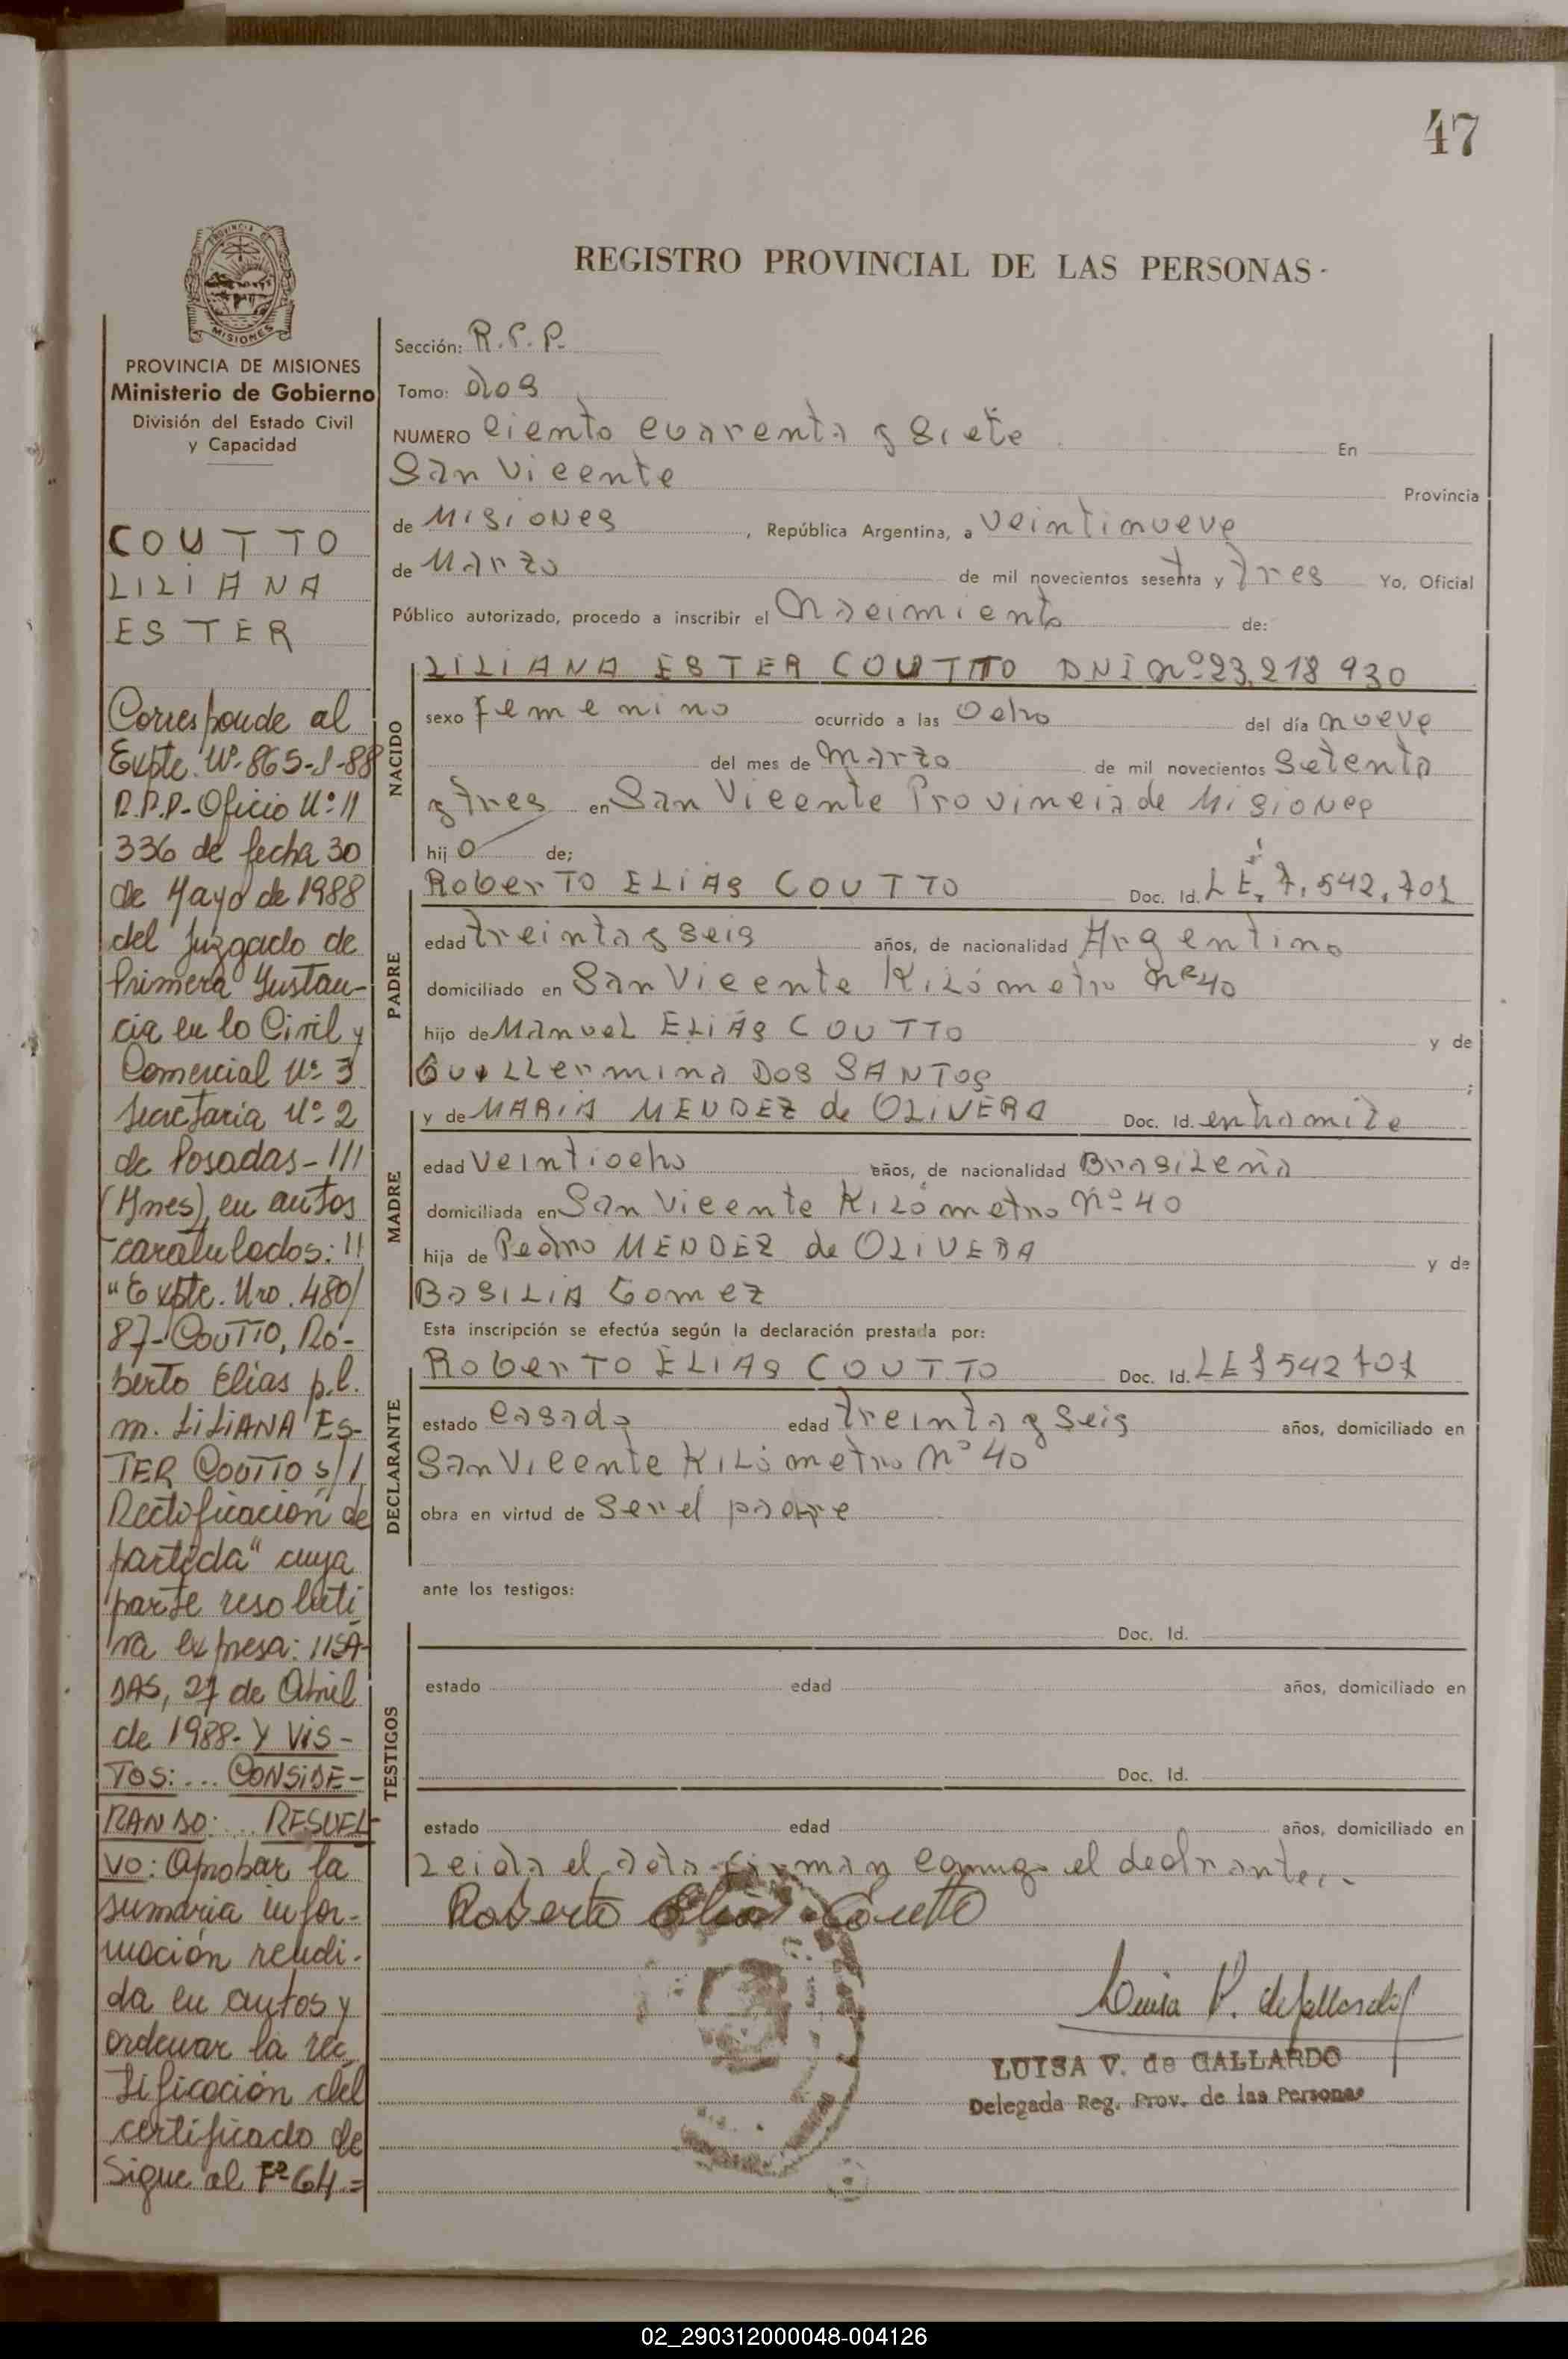 47
REGISTRO PROVINCIAL DE LAS PERSONAS-
PROVINCIA DE
MISIONES
PROVINCIA DE MISIONES
Ministerio de Gobierno
División del Estado Civil
y Capacidad
COUTTO
LILIANA
ESTER
Corresponde al
Expte. Nº 865-J-88
R.P.P- Oficio Nº 11
336 de fecha 30
de Mayo de 1988
del Juzgado de
Primera Instan-
cia en lo Civil y
Comercial Nº 3
Secretaria Nº 2
de Posadas-///
(Mnes), en autos
caratulados: //
"Expte. Nro. 480/
87- COUTTO, Ro-
berto Elias p.l.
m. LILIANA ES-
TER COUTTO s/ /
Rectificación de
partida" cuya
parte resoluti
va expresa:
DAS, 27 de Abril
de 1988- Y VIS-
TOS: ... CONSIDE-
RANDO: ... RESUEL-
VO: Aprobar la
sumaria infor-
mación rendi-
da en autos y
ordenar la rec
tificación del
certificado de
Sigue al Fº 64.=
Sección: R.P.P.
Tomo: dos
NUMERO ciento cuarenta y siete En
San Vicente Provincia
de Misiones, República Argentina, a veintinueve
de Marzo de mil novecientos sesenta y tres Yo, Oficial
Público autorizado, procedo a inscribir el Nacimiento de:
NACIDO
LILIANA ESTER COUTTO DNI Nº 23.218 930
sexo femenino ocurrido a las Ocho del día nueve
del mes de Marzo de mil novecientos setenta
y tres en San Vicente Provincia de Misiones
hijo de;
PADRE
Roberto ELIAS COUTTO Doc. Id. LE. 7.542.701
edad treinta y seis años, de nacionalidad Argentino
domiciliado en San Vicente Kilómetro Nº 40
hijo de Manuel ELIAS COUTTO y de
Guillermina DOS SANTOS ;
MADRE
y de MARIA MENDEZ de OLIVERA Doc. Id. en tramite
edad Veintiocho años, de nacionalidad Brasileña
domiciliada en San Vicente Kilómetro Nº 40
hija de Pedro MENDEZ de OLIVERA y de
BASILIA Gomez
Esta inscripción se efectúa según la declaración prestada por:
DECLARANTE
Roberto ELIAS COUTTO Doc. Id. LE 7542701
estado casado edad treinta y seis años, domiciliado en
San Vicente Kilómetro Nº 40
obra en virtud de Ser el padre
ante los testigos:
TESTIGOS
Doc. Id.
estado edad años, domiciliado en
Doc. Id.
estado edad años, domiciliado en
Leida el acta firman conmigo el declarante.-
Roberto Elias Coutto
Luisa V. de Gallardo
LUISA V. de GALLARDO
Delegada Reg. Prov. de las Personas
02_290312000048-004126